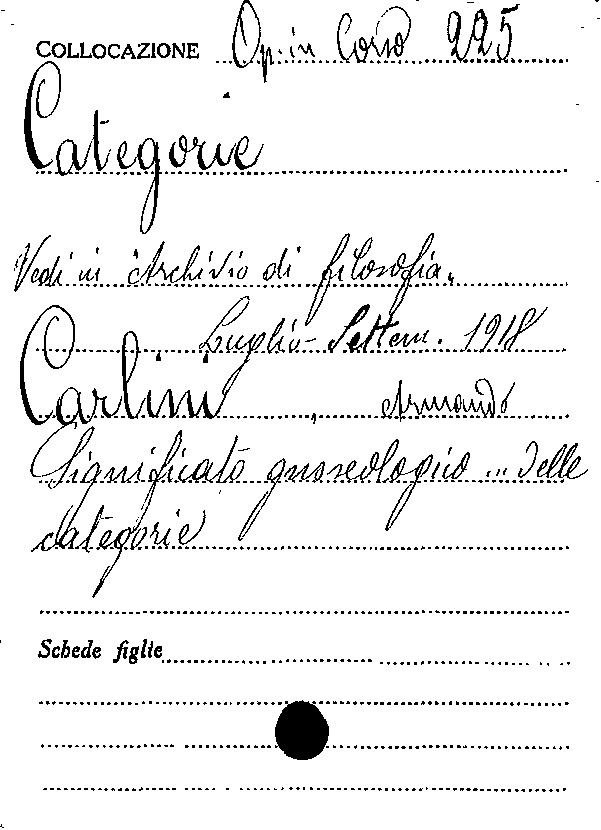 COLLOCAZIONE Op. in Corso 225
Categorie
Vedi in Archivio di filosofia.
Luglio-Settem. 1918
Carlini, Armando
Significato gnoseologico ... delle
categorie
Schede figlie